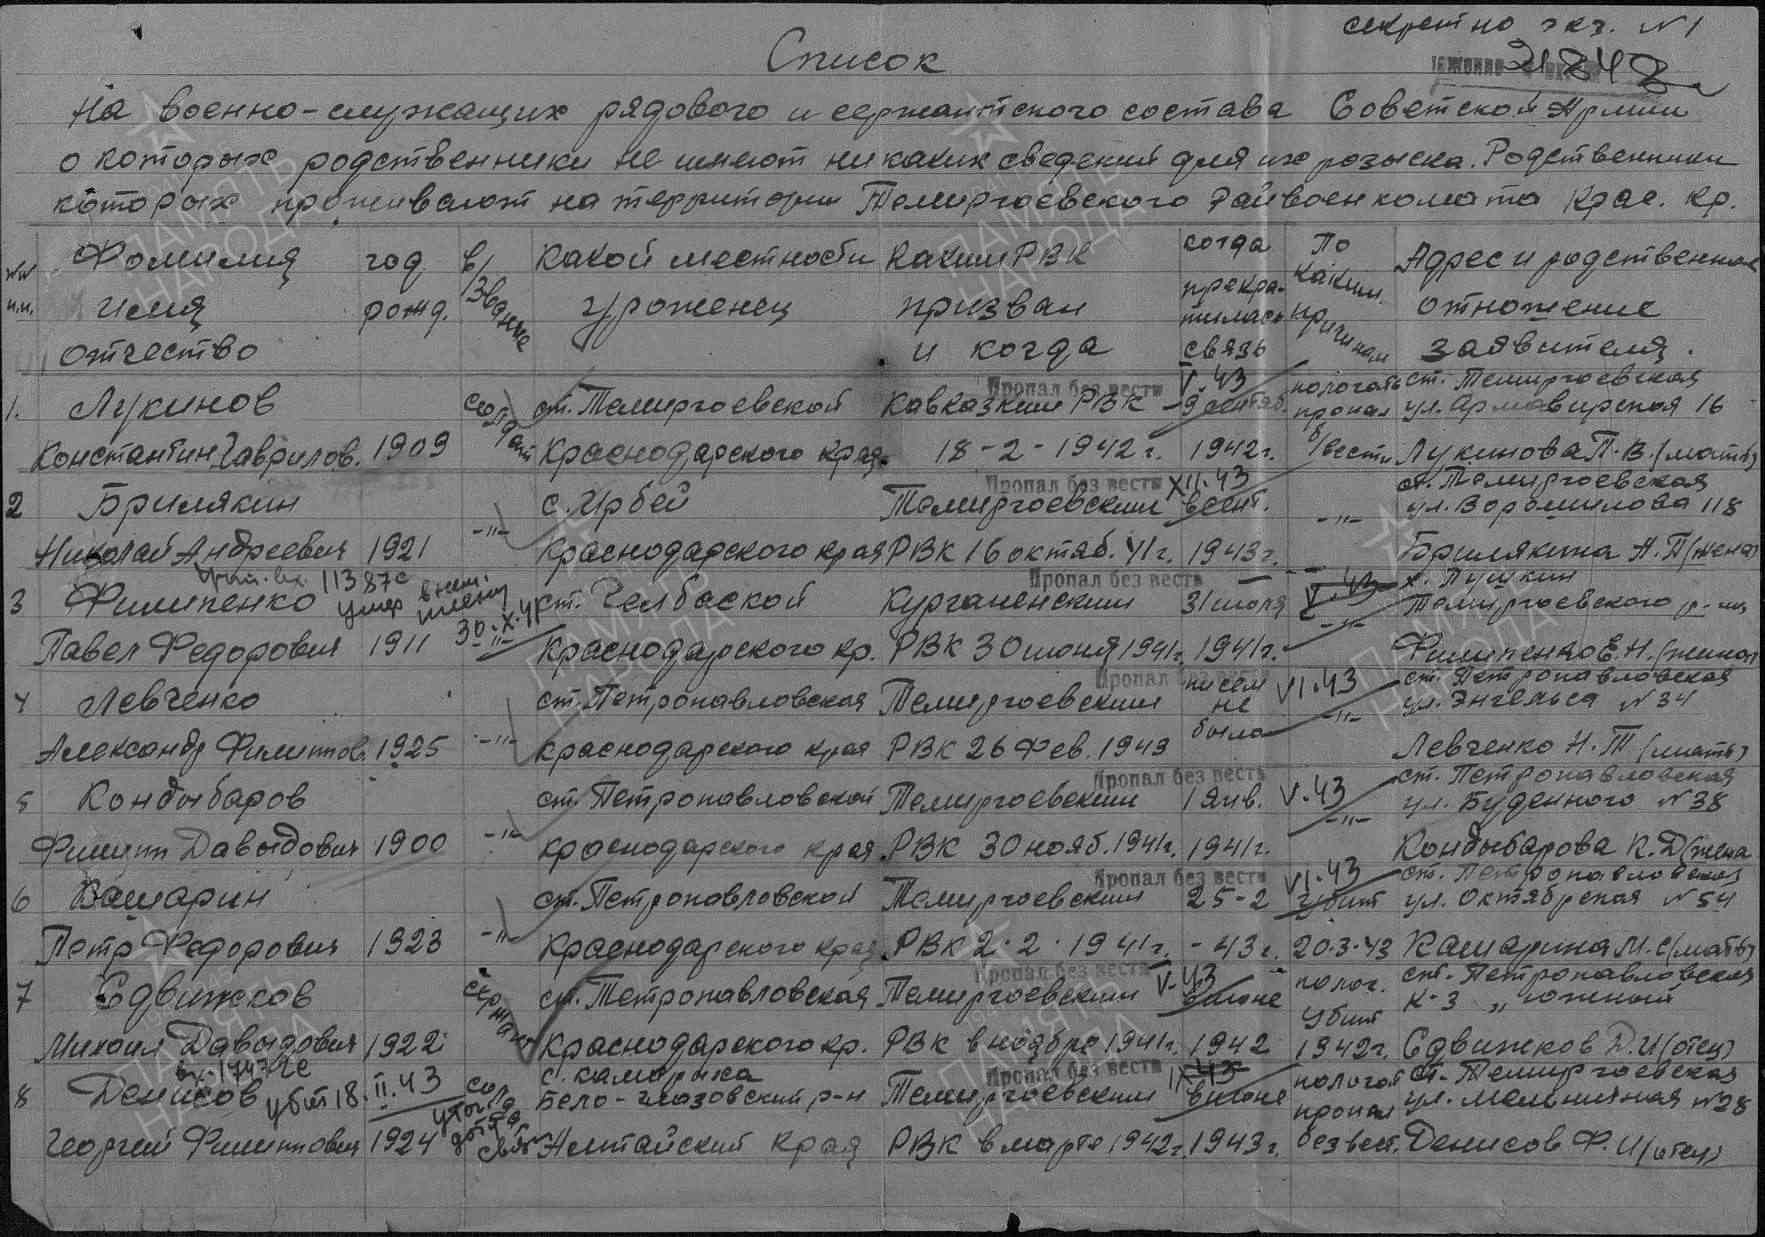 секретно экз. N 1
21848
Список
на военно-служащих рядового и сержантского состава Советской Армии
о которых родственники не имеют никаких сведений для их розыска. Родственники
которых проживают на территории Темиргоевского райвоенкомата Крас. кр.
NN п.п. Фамилия имя отчество год рожд. в/звание какой местности уроженец каким РВК призван и когда когда прекратилась связь По каким причинам Адрес и родственное отношение заявителя.
Пропал без вести V.43
1. Лукинов солдат ст. Темиргоевской Кавказким РВК - 9 сентяб. пологать пропал ст. Темиргоевская ул. Армавирская 16
Константин Гаврилов. 1909 Краснодарского края. 18-2-1942 г. 1942 г. б/вести Лукинова П.В. (мать)
Пропал без вести XII.43
2 Брилякин -"- с. Ирбей Темиргоевским в сент. -"- ст. Темиргоевская ул. Ворошилова 118
Николай Андреевич 1921 Краснодарского края РВК 16 октяб. 41 г. 1943 г. Брилякина А.П (жена)
вх. 11387с
Пропал без вести
3 Филипенко умер в нем. плену 30.X.41 ст. Челбаской Курганенским 31 июля V.43 х. Пушкин Темиргоевского р-на
Павел Федорович 1911 -"- Краснодарского кр. РВК 30 июня 1941 г. 1941 г. -"- Филипенко Е.Н. (жена)
Пропал без вести
4 Левченко ст. Петропавловская Темиргоевским писем не было VI.43 -"- ст. Петропавловская ул. Энгельса N 34
Александр Филиппов. 1925 -"- краснодарского края РВК 26 фев. 1943 Левченко Н.Т (мать)
Пропал без вести
5 Кондыбаров ст. Петропавловской Темиргоевским 1 янв. V.43 ст. Петропавловская ул. Буденного N 38
Филипп Давыдович 1900 -"- краснодарского края РВК 30 нояб. 1941 г. 1941 г. -"- Кондыбарова К.Д (жена
Пропал без вести
6 Кашарин ст. Петропавловской Темиргоевским 25-2 VI.43 убит ст. Петропавловская ул. Октябрская N 54
Петр Федорович 1923 -"- Краснодарского края РВК 2.2.1941 г. -43 г. 20.3.43 Кашарина М.С (мать)
Пропал без вести V-43
7 Сдвижков сержант ст. Петропавловская Темиргоевским в июне полог. убит ст. Петропавловская к-з "южный
Михаил Давыдович 1922 Краснодарского кр. РВК в ноябре 1941 г. 1942 1942 г. Сдвижков Д.И (отец)
Пропал без вести IX 43
8 Денисов убит 18.II.43 с. камышка Бело-глазовский р-н Темиргоевским в июне пологая пропал ст. Темиргоевская ул. Мельничная N 28
Георгий Филиппович 1924 Алтайский край РВК в марте 1942 г. 1943 г. без вест. Денисов Ф.И (отец)
ПАМЯТЬ НАРОДА